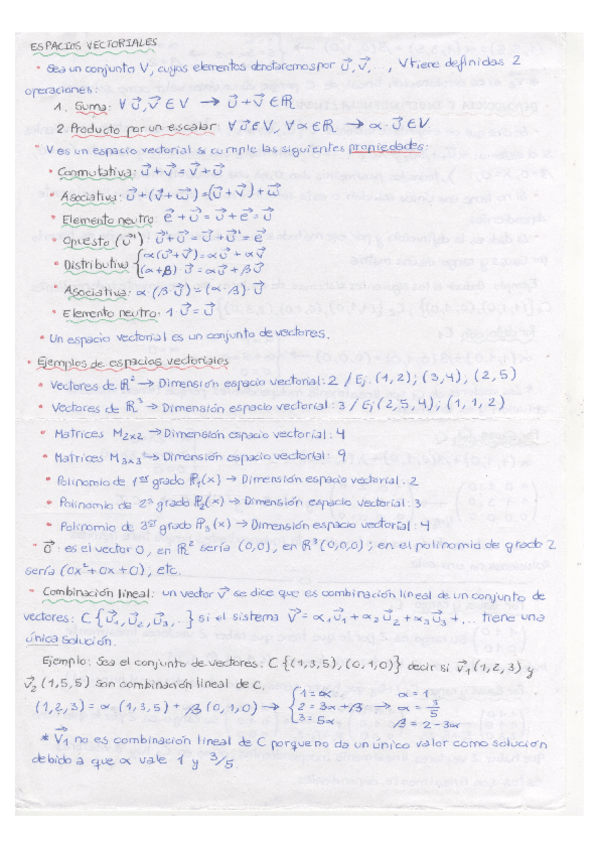 ESPACIOS VECTORIALES
• Sea un conjunto V, cuyos elementos denotaremos por u⃗, v⃗, ..., V tiene definidas 2
operaciones:
1. Suma: ∀ u⃗, v⃗ ∈ V → u⃗ + v⃗ ∈ ℝ.
2. Producto por un escalar: ∀ v⃗ ∈ V, ∀ α ∈ ℝ → α · u⃗ ∈ V.
• V es un espacio vectorial si cumple las siguientes propiedades:
• Conmutativa: u⃗ + v⃗ = v⃗ + u⃗
• Asociativa: u⃗ + (v⃗ + w⃗) = (u⃗ + v⃗) + w⃗
• Elemento neutro: e⃗ + u⃗ = u⃗ + e⃗ = u⃗
• Opuesto (u⃗'): u⃗' + u⃗ = u⃗ + u⃗' = e⃗
• Distributiva { α(u⃗ + v⃗) = αu⃗ + αv⃗
(α + β) u⃗ = αu⃗ + βu⃗
• Asociativa: α (β u⃗) = (α · β) u⃗
• Elemento neutro: 1 u⃗ = u⃗
• Un espacio vectorial es un conjunto de vectores.
• Ejemplos de espacios vectoriales
• Vectores de ℝ² → Dimensión espacio vectorial: 2 / Ej. (1,2); (3,4), (2,5)
• Vectores de ℝ³ → Dimensión espacio vectorial: 3 / Ej (2,5,4); (1,1,2)
• Matrices M2x2 → Dimensión espacio vectorial: 4
• Matrices M3x3 → Dimensión espacio vectorial: 9
• Polinomio de 1er grado P₁(x) → Dimensión espacio vectorial: 2
• Polinomio de 2º grado P₂(x) → Dimensión espacio vectorial: 3
• Polinomio de 3er grado P₃(x) → Dimensión espacio vectorial: 4
• 0⃗: es el vector 0, en ℝ² sería (0,0); en ℝ³ (0,0,0); en el polinomio de grado 2
sería (0x² + 0x + 0), etc.
• Combinación lineal: un vector v⃗ se dice que es combinación lineal de un conjunto de
vectores: C {u⃗₁, u⃗₂, u⃗₃, ..} si el sistema v⃗ = α₁u⃗₁ + α₂u⃗₂ + α₃u⃗₃ + ... tiene una
única solución.
Ejemplo: Sea el conjunto de vectores: C {(1,3,5), (0,1,0)} decir si v⃗₁ (1,2,3) y
v⃗₂ (1,5,5) son combinación lineal de C.
(1,2,3) = α (1,3,5) + β (0,1,0) → { 1 = α α = 1
2 = 3α + β → α = 3/5
3 = 5α β = 2 - 3α
* v⃗₁ no es combinación lineal de C porque no da un único valor como solución
debido a que α vale 1 y 3/5.